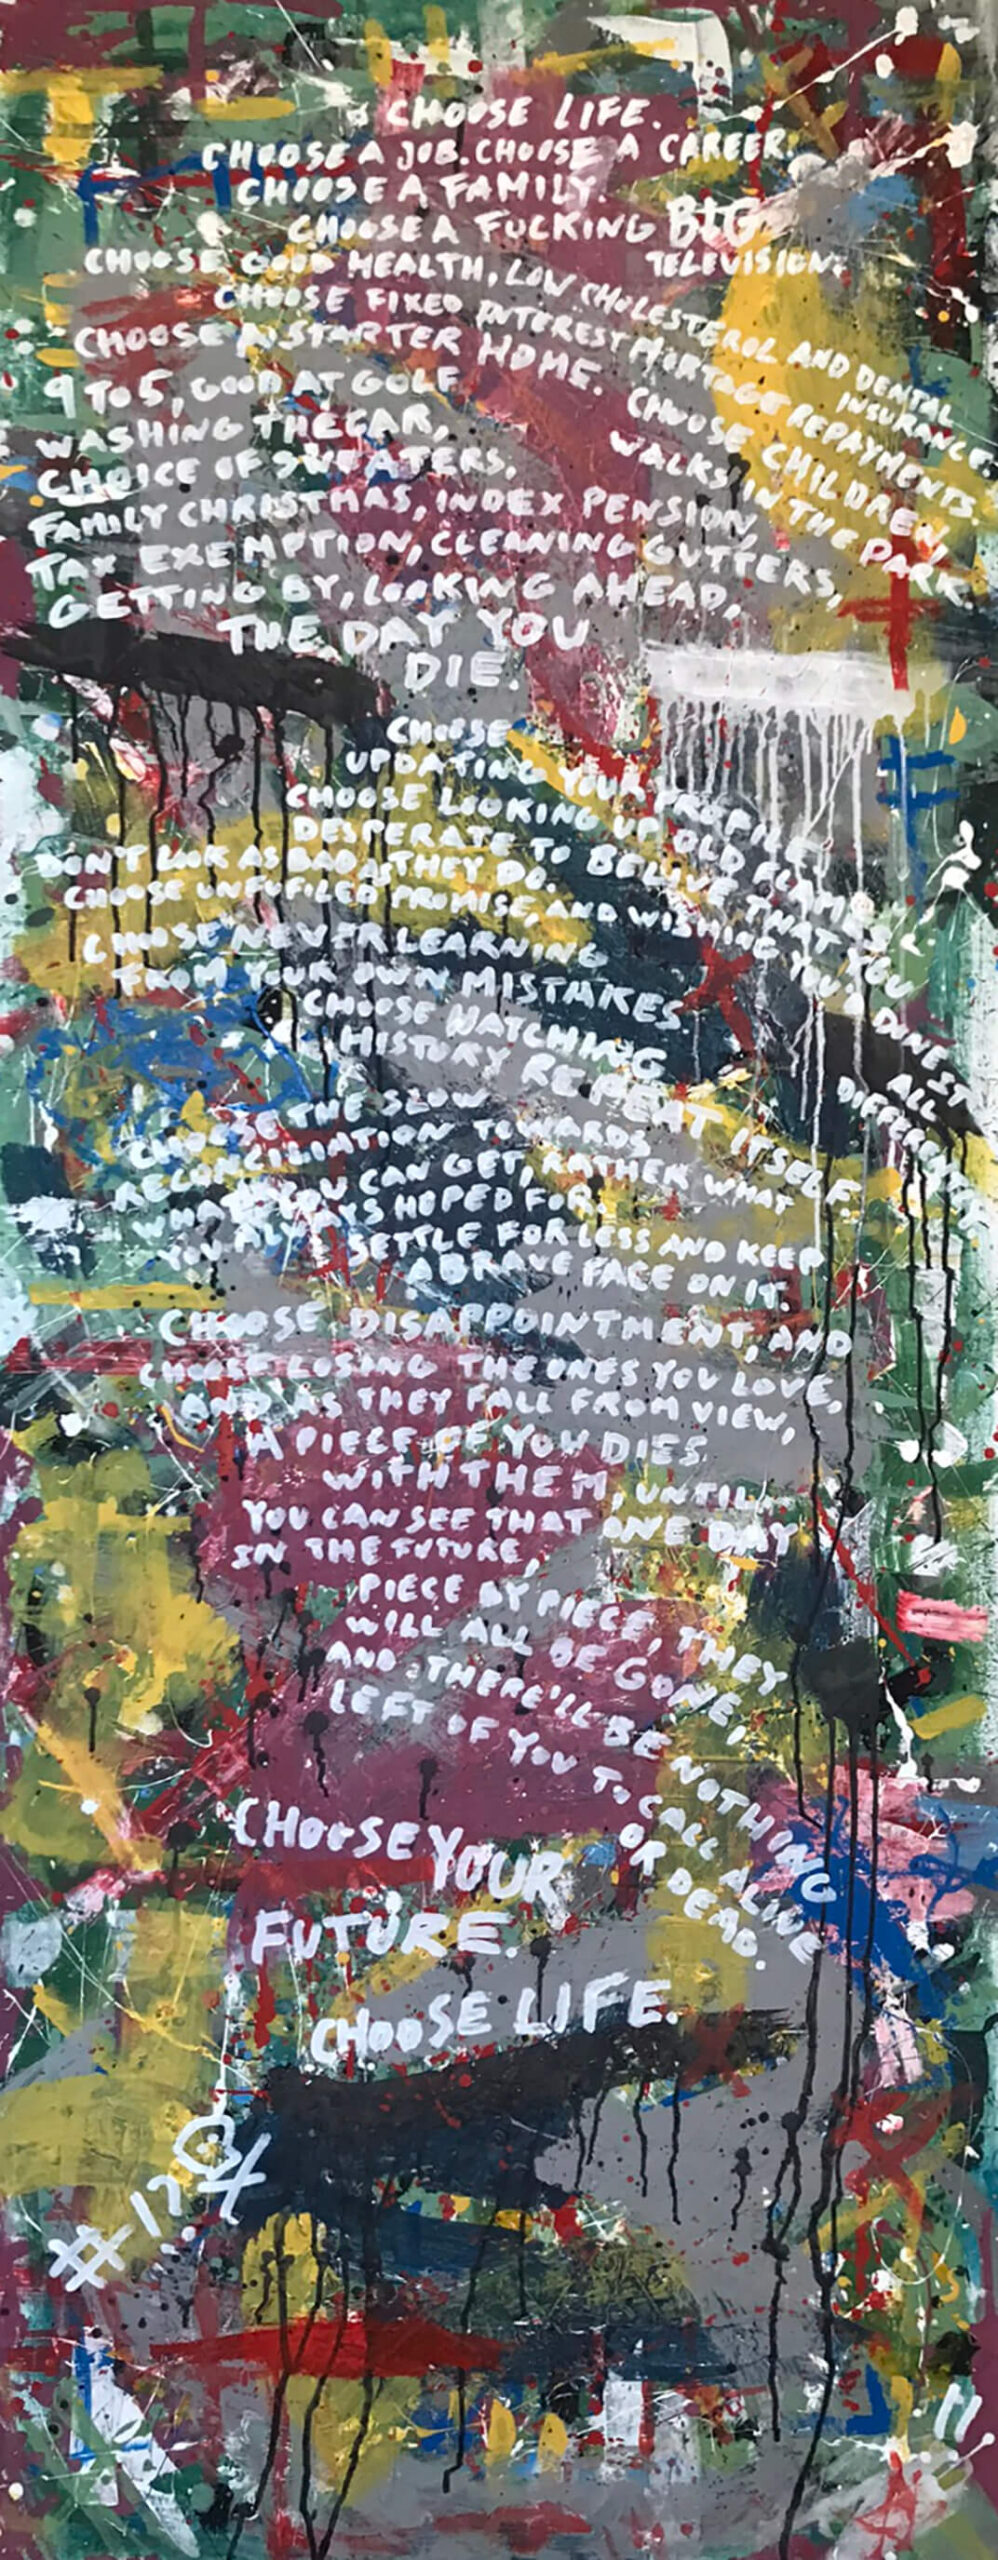 CHOOSE LIFE.
CHOOSE A JOB. CHOOSE A CAREER.
CHOOSE A FAMILY.
CHOOSE A FUCKING BIG
TELEVISION.
CHOOSE GOOD HEALTH, LOW CHOLESTEROL AND DENTAL
INSURANCE.
CHOOSE FIXED INTEREST MORTAGE REPAYMENTS.
CHOOSE A STARTER HOME. CHOOSE CHILDREN,
WALKS IN THE PARK
9 TO 5, GOOD AT GOLF
WASHING THE CAR,
CHOICE OF SWEATERS,
FAMILY CHRISTMAS, INDEX PENSION,
TAX EXEMPTION, CLEANING GUTTERS,
GETTING BY, LOOKING AHEAD,
THE DAY YOU
DIE.
CHOOSE
UPDATING YOUR PROFILE
CHOOSE LOOKING UP OLD FLAMES
DESPERATE TO BELIVE THAT YOU
DON'T LOOK AS BAD AS THEY DO.
CHOOSE UNFUFILED PROMISE, AND WISHING YOU'D DONE IT
ALL
DIFFERENTLY
CHOOSE NEVER LEARNING
FROM YOUR OWN MISTAKES.
CHOOSE WATCHING
HISTORY REPEAT ITSELF.
CHOOSE THE SLOW
RECONCILIATION TOWARDS
WHAT YOU CAN GET, RATHER WHAT
YOU ALWAYS HOPED FOR.
SETTLE FOR LESS AND KEEP
A BRAVE FACE ON IT.
CHOOSE DISAPPOINTMENT, AND
CHOOSE LOSING THE ONES YOU LOVE,
AND AS THEY FALL FROM VIEW,
A PIECE OF YOU DIES
WITH THEM, UNTIL
YOU CAN SEE THAT ONE DAY
IN THE FUTURE,
PIECE BY PIECE, THEY
WILL ALL BE GONE,
AND THERE'LL BE NOTHING
LEFT OF YOU TO CALL ALIVE
OR DEAD.
CHOOSE YOUR
FUTURE.
CHOOSE LIFE.